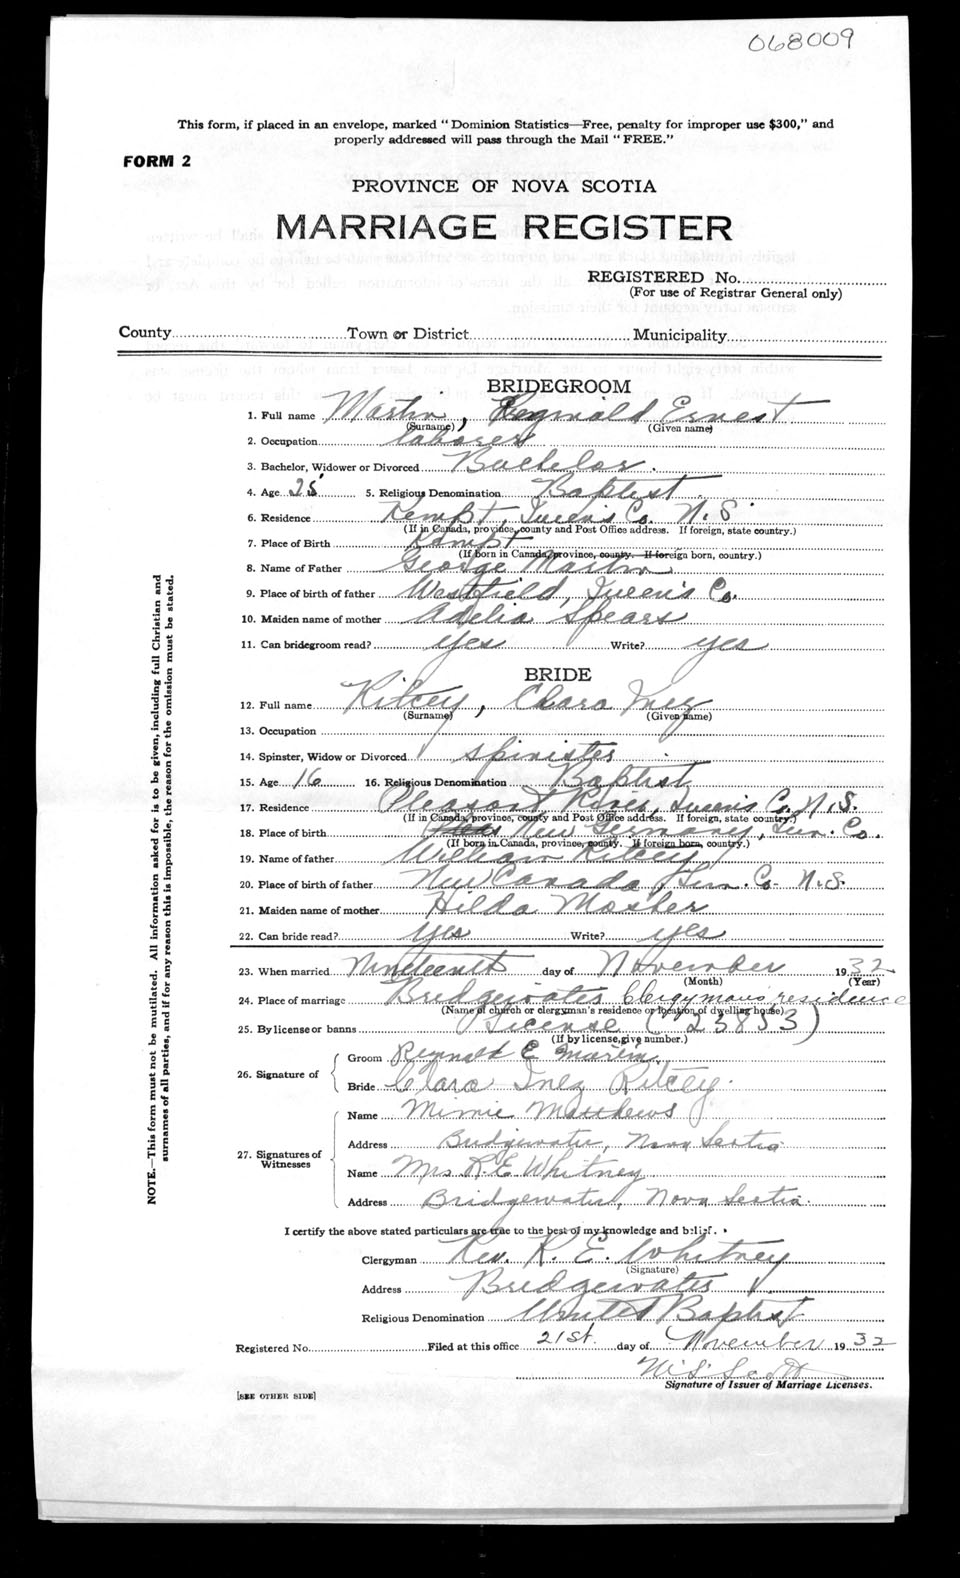 068009
This form, if placed in an envelope, marked "Dominion Statistics—Free, penalty for improper use $300," and
properly addressed will pass through the Mail "FREE."
FORM 2
PROVINCE OF NOVA SCOTIA
MARRIAGE REGISTER
REGISTERED No.
(For use of Registrar General only)
County Town or District Municipality
BRIDEGROOM
1. Full name Martin, Reginald Ernest
(Surname) (Given name)
2. Occupation laborer
3. Bachelor, Widower or Divorced Bachelor.
4. Age 25 5. Religious Denomination Baptist
6. Residence Kempt, Queen's Co. N.S.
(If in Canada, province, county and Post Office address. If foreign, state country.)
7. Place of Birth Kempt
(If born in Canada, province, county. If foreign born, country.)
8. Name of Father George Martin
9. Place of birth of father Westfield, Queen's Co.
10. Maiden name of mother Adelia Spears
11. Can bridegroom read? yes Write? yes
BRIDE
12. Full name Ritcey, Clara Inez
(Surname) (Given name)
13. Occupation
14. Spinster, Widow or Divorced spinister
15. Age 16 16. Religious Denomination Baptist
17. Residence Pleasant River Queen's Co. N.S.
(If in Canada, province, county and Post Office address. If foreign, state country.)
18. Place of birth New Germany, Lun. Co.
(If born in Canada, province, county. If foreign born, country.)
19. Name of father William Ritcey
20. Place of birth of father New Canada, Lun. Co. N.S.
21. Maiden name of mother Hilda Mosher
22. Can bride read? yes Write? yes
23. When married Nineteenth day of November 1932
(Month) (Year)
24. Place of marriage Bridgewater Clergyman's residence
(Name of church or clergyman's residence or location of dwelling house)
25. By license or banns License (23853)
(If by license, give number.)
26. Signature of
Groom Reginald E Martin
Bride Clara Inez Ritcey.
27. Signatures of Witnesses
Name Minnie Matthews
Address Bridgewater, Nova Scotia
Name Mrs. R. E. Whitney
Address Bridgewater, Nova Scotia.
I certify the above stated particulars are true to the best of my knowledge and belief.
Clergyman Rev. R. E. Whitney
(Signature)
Address Bridgewater
Religious Denomination United Baptist
Registered No. Filed at this office 21st. day of November 1932
Scott
Signature of Issuer of Marriage Licenses.
[SEE OTHER SIDE]
NOTE.—This form must not be mutilated. All information asked for is to be given, including full Christian and
surnames of all parties, and if for any reason this is impossible, the reason for the omission must be stated.